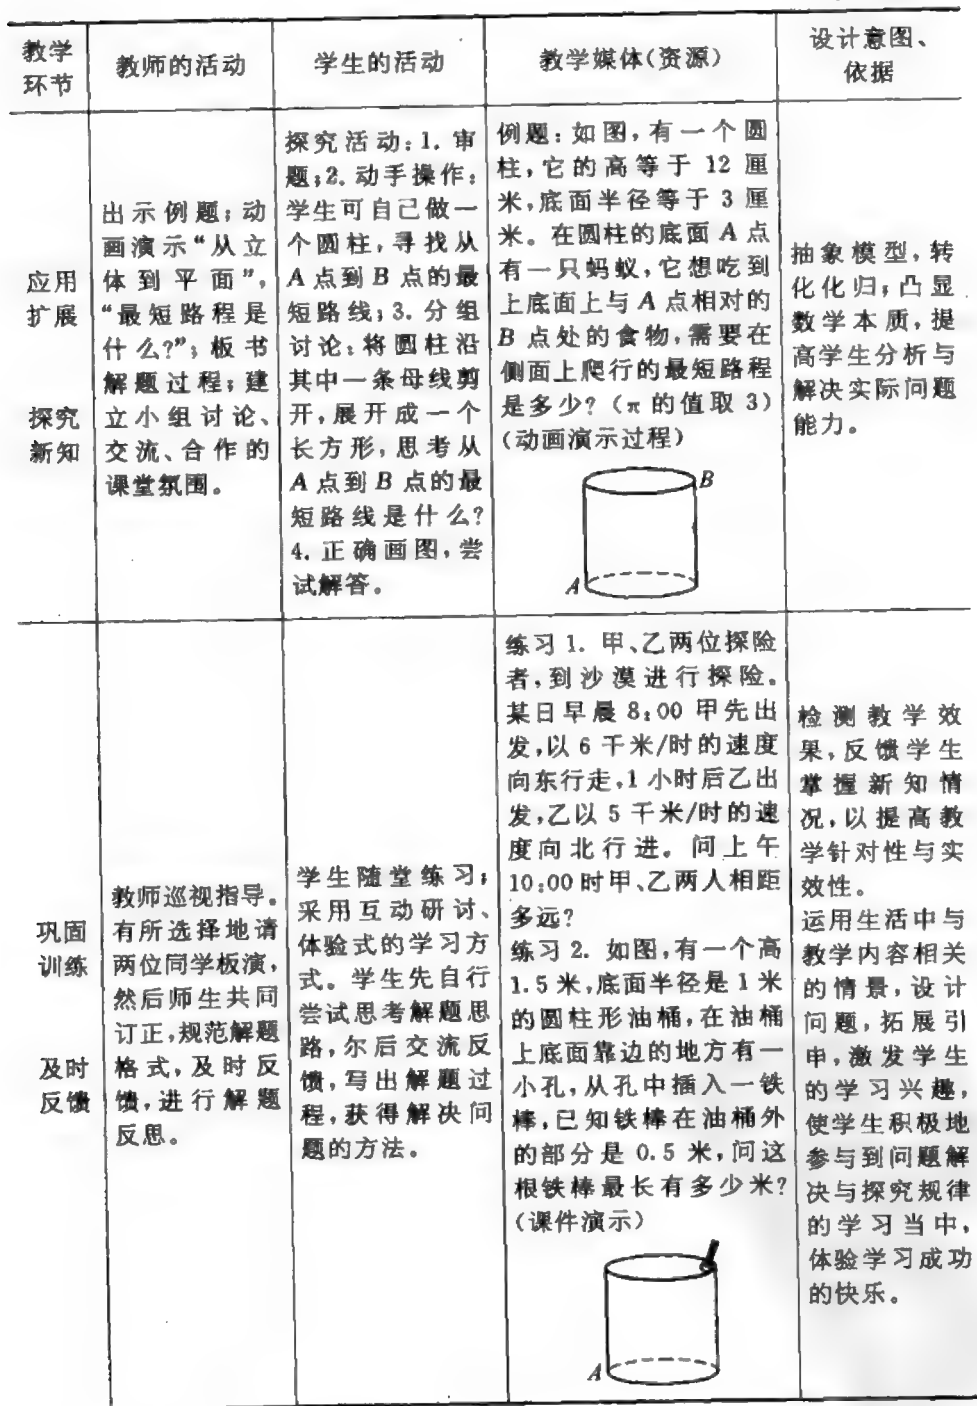 教学
环节
教师的活动
学生的活动
教学媒体(资源)
设计意图、
依据
应用
扩展
探究
新知
出示例题；动
画演示“从立
体到平面”，
“最短路程是
什么？”；板书
解题过程；建
立小组讨论、
交流、合作的
课堂氛围。
探究活动：1. 审
题；2. 动手操作：
学生可自己做一
个圆柱，寻找从
A 点到 B 点的最
短路线；3. 分组
讨论：将圆柱沿
其中一条母线剪
开，展开成一个
长方形，思考从
A 点到 B 点的最
短路线是什么？
4. 正确画图，尝
试解答。
例题：如图，有一个圆
柱，它的高等于 12 厘
米，底面半径等于 3 厘
米。在圆柱的底面 A 点
有一只蚂蚁，它想吃到
上底面上与 A 点相对的
B 点处的食物，需要在
侧面上爬行的最短路程
是多少？（π 的值取 3）
（动画演示过程）
B
A
抽象模型，转
化化归；凸显
数学本质，提
高学生分析与
解决实际问题
能力。
巩固
训练
及时
反馈
教师巡视指导。
有所选择地请
两位同学板演，
然后师生共同
订正，规范解题
格式，及时反
馈，进行解题
反思。
学生随堂练习；
采用互动研讨、
体验式的学习方
式。学生先自行
尝试思考解题思
路，尔后交流反
馈，写出解题过
程，获得解决问
题的方法。
练习 1. 甲、乙两位探险
者，到沙漠进行探险。
某日早晨 8:00 甲先出
发，以 6 千米/时的速度
向东行走，1 小时后乙出
发，乙以 5 千米/时的速
度向北行进。问上午
10:00 时甲、乙两人相距
多远？
练习 2. 如图，有一个高
1.5 米，底面半径是 1 米
的圆柱形油桶，在油桶
上底面靠边的地方有一
小孔，从孔中插入一铁
棒，已知铁棒在油桶外
的部分是 0.5 米，问这
根铁棒最长有多少米？
（课件演示）
A
检测教学效
果，反馈学生
掌握新知情
况，以提高教
学针对性与实
效性。
运用生活中与
教学内容相关
的情景，设计
问题，拓展引
申，激发学生
的学习兴趣，
使学生积极地
参与到问题解
决与探究规律
的学习当中，
体验学习成功
的快乐。